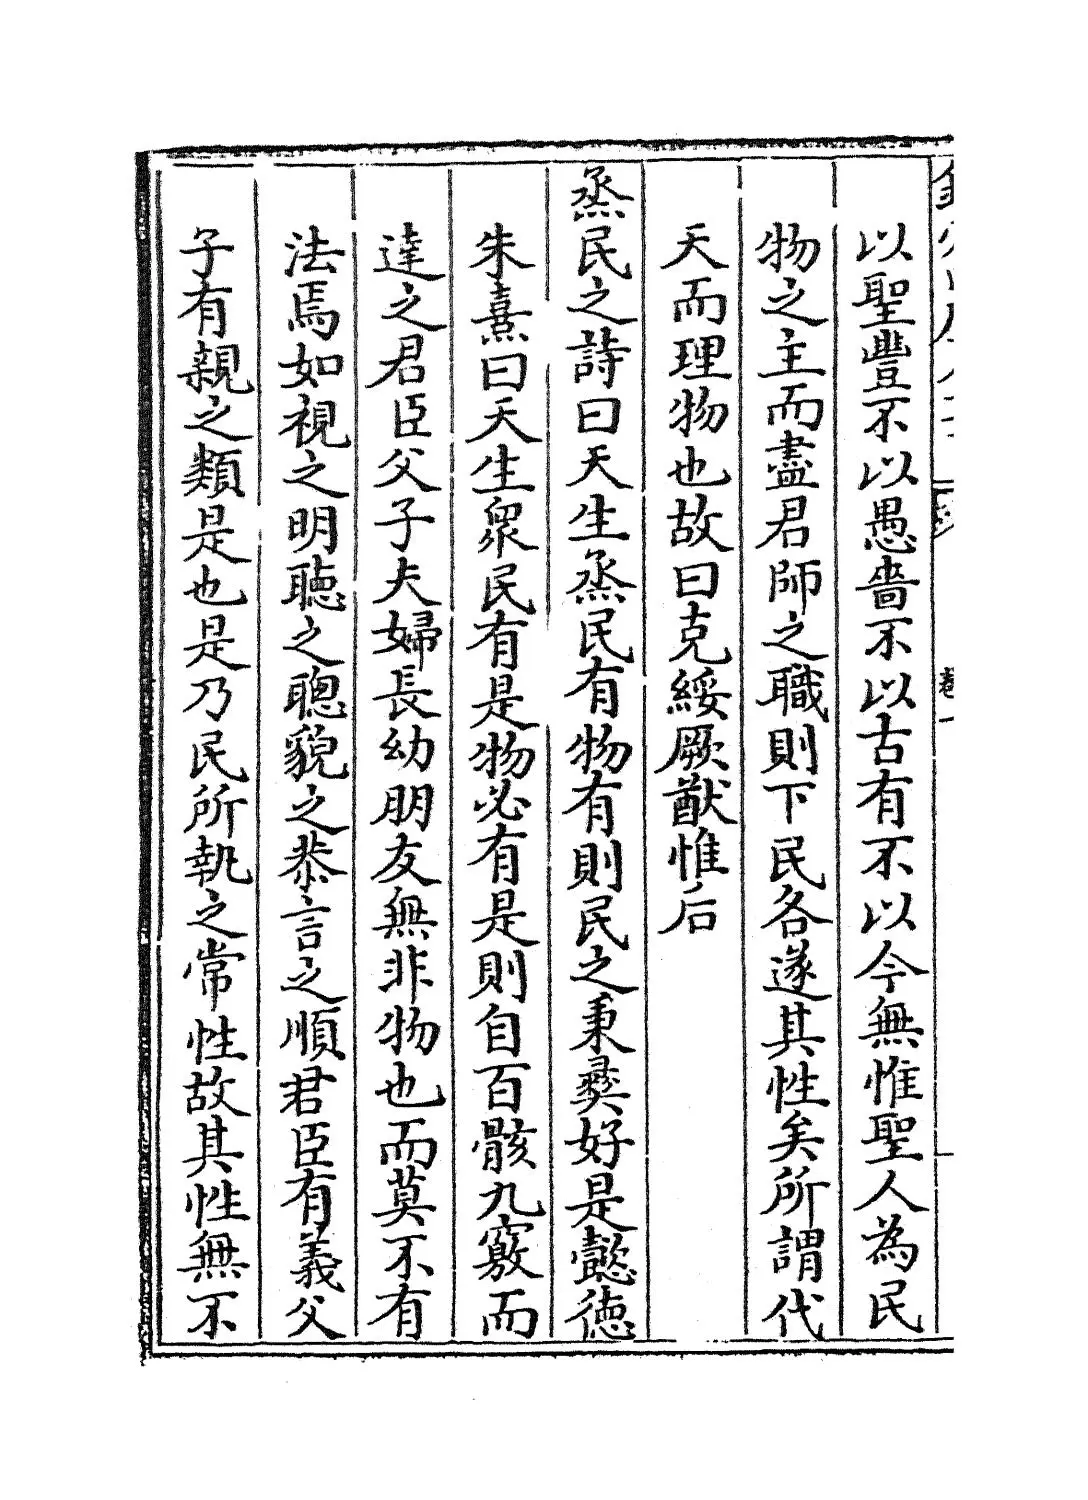 以聖豐不以愚嗇不以古有不以今無惟聖人為民
物之主而盡君師之職則下民各遂其性矣所謂代
天而理物也故曰克綏厥猷惟后
烝民之詩曰天生烝民有物有則民之秉彛好是懿徳
朱熹曰天生衆民有是物必有是則自百骸九竅而
達之君臣父子夫婦長幼朋友無非物也而莫不有
法焉如視之明聴之聰貌之恭言之順君臣有義父
子有親之類是也是乃民所執之常性故其性無不